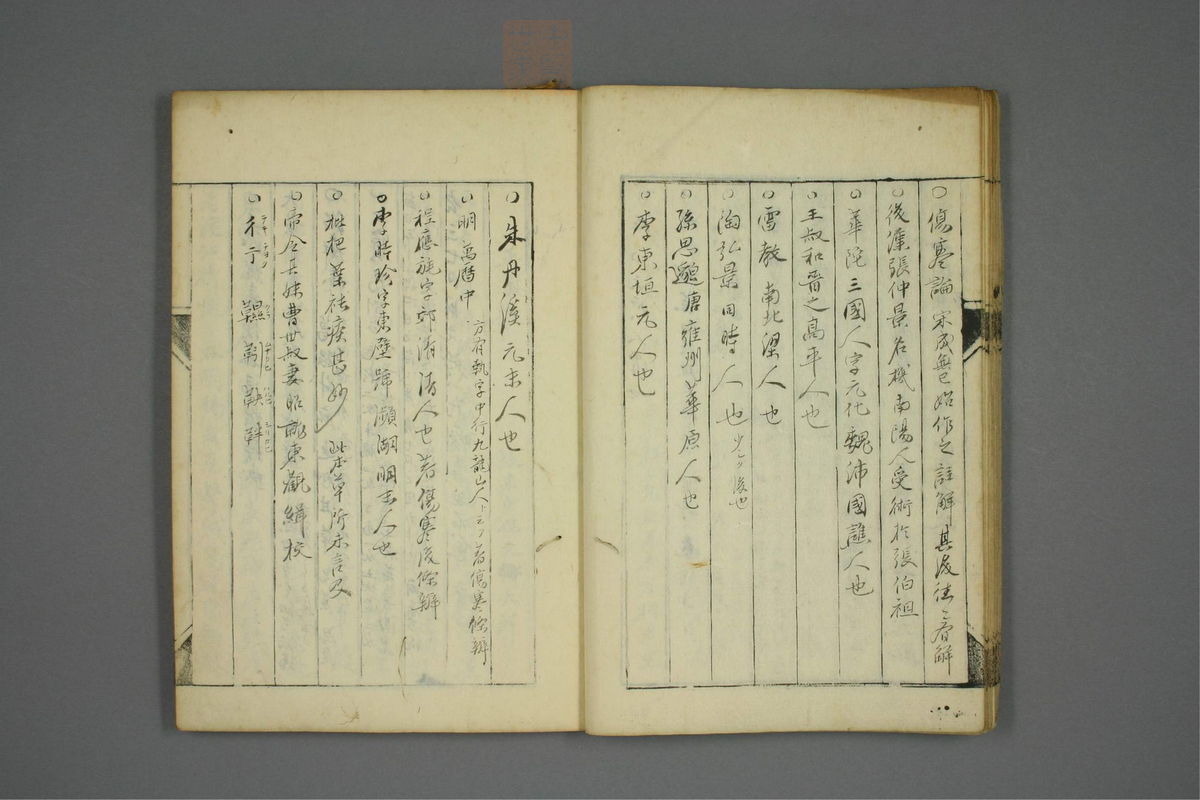 ○傷寒論 宋成無已始作之註解其後往々有解
○後漢張仲景名機南陽人受術於張伯祖
○華陀三國人字元化魏沛國譙人也
○王叔和晋之高平人也
○雷斅 南北梁人也
○陶弘景同時人也 少シク後也
○孫思邈唐雍州華原人也
○李東垣元人也
○朱丹溪元末人也
○明萬暦中 方有執字中行九龍山人ト云フ著傷寒條辨
○程應旄字郊淆清人也著傷寒後條辨
○李時珍字東璧號瀕湖明末人也
○枇杷葉祛痰甚妙 此本草所未言及
○帝令其妹曹世叔妻昭就東觀緝校
○彳亍 靴